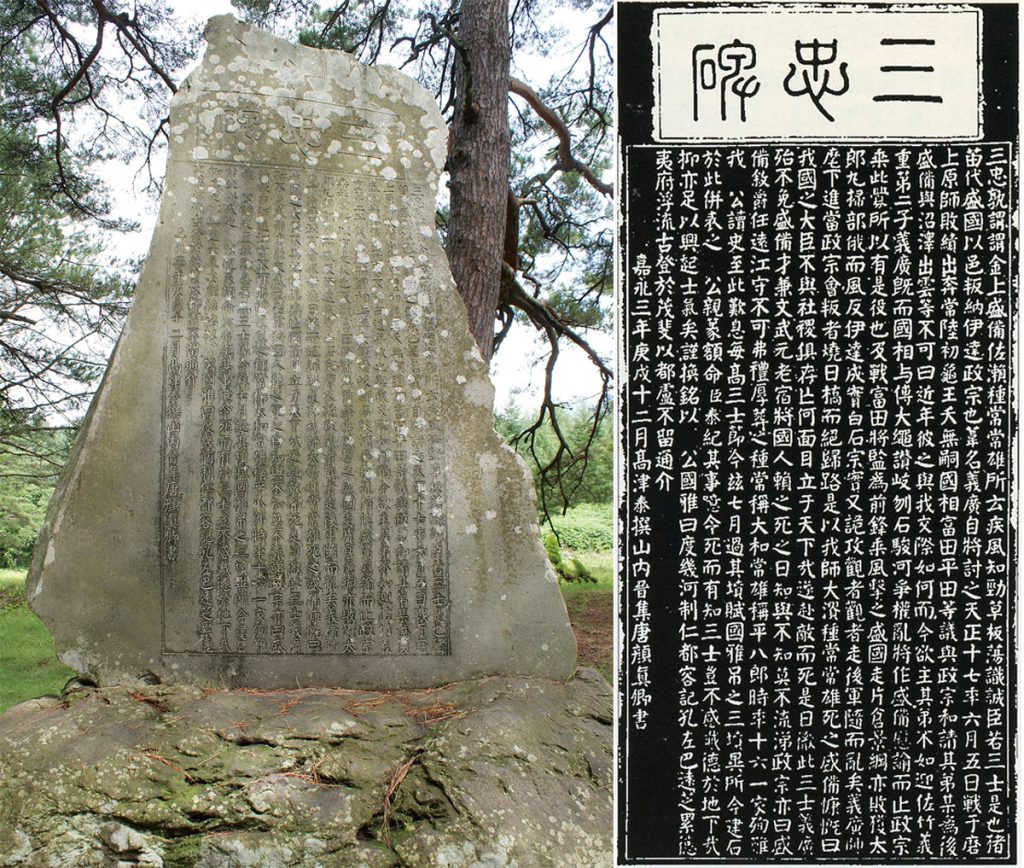 三忠碑
三忠孰謂謂金上盛備佐瀨種常常雄所云疾風知勁草板蕩識誠臣若三士是也猪
苗代盛國以邑叛納伊達政宗也葦名義廣自將討之天正十七年六月五日戰于磨
上原師敗績出奔常陸初龜王夭無嗣國相富田平田等議與政宗和請其弟某為後
盛備與沼澤出雲等不可曰近年彼之與我交際如何而今欲王其弟不如迎佐竹義
重第二子義廣既而國相與傅大繩讚岐刎石駿河爭權亂將作盛備慰諭而止政宗
乘此釁所以有是役也及戰富田將監為前鋒乘風擊之盛國走片倉景綱亦敗獲太
郎丸掃部俄而風反伊達成實白石宗實又詭攻觀者觀者走後軍隨而亂矣義廣帥
麾下進當政宗會叛者燒日橋而絕歸路是以我師大潰種常常雄死之盛備慷慨曰
我國之大臣不與社稷俱存亡何面目立于天下哉遂赴敵而死是日微此三士義廣
殆不免盛備才兼文武元老宿將國人賴之死之日知與不知莫不流涕政宗亦曰盛
備敘爵任遠江守不可弗禮厚葬之種常稱大和常雄稱平八郎時年十六一家殉難
我 公讀史至此歎息每高三士節今茲七月過其墳賦國雅弔之三墳異所今建石
於此併表之 公親篆額命臣泰紀其事噫令死而有知三士豈不感戴德於地下哉
抑亦足以興起士氣矣謹換銘以 公國雅曰度幾河制仁都容記孔左巴遠之累德
夷府浮流古登於茂斐以都盧不留通介
嘉永三年庚戌十二月高津泰撰山内晉集唐顏真卿書